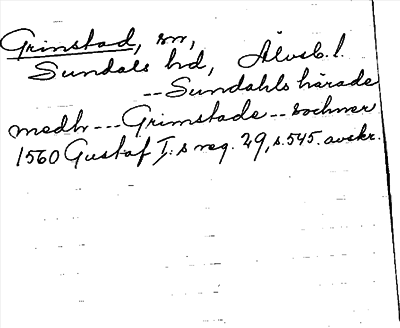 Grinstad, sn,
Sundals hd, Älvsb. l.
-- Sundahls härade
medh --- Grimstade -- sochner
1560 Gustaf I:s reg. 29, s. 545. avskr.